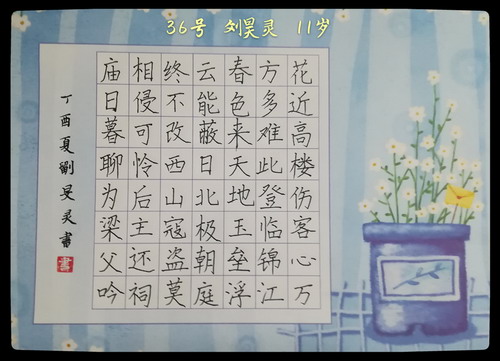 36号 刘昊灵 11岁
花近高楼伤客心万
方多难此登临锦江
春色来天地玉垒浮
云能蔽日北极朝庭
终不改西山寇盗莫
相侵可怜后主还祠
庙日暮聊为梁父吟
丁酉夏劉昊灵書
書